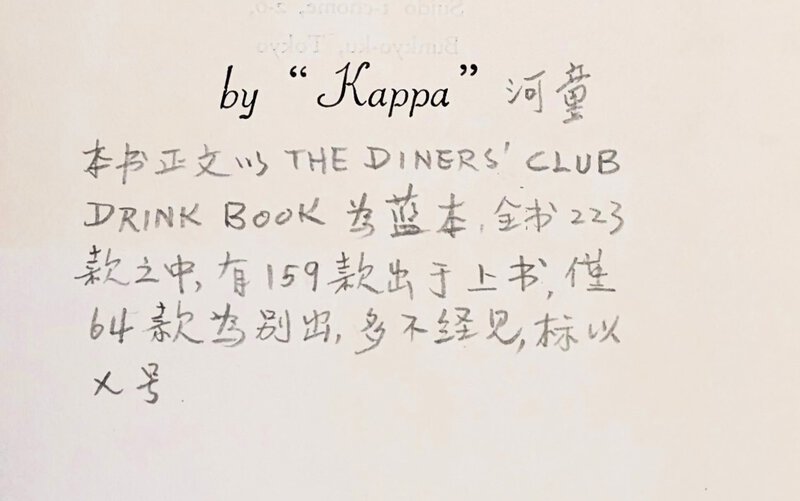 by “Kappa” 河童
本书正文以 THE DINERS' CLUB
DRINK BOOK 为蓝本,全书223
款之中,有159款出于上书,仅
64款为别出,多不经见,标以
X号